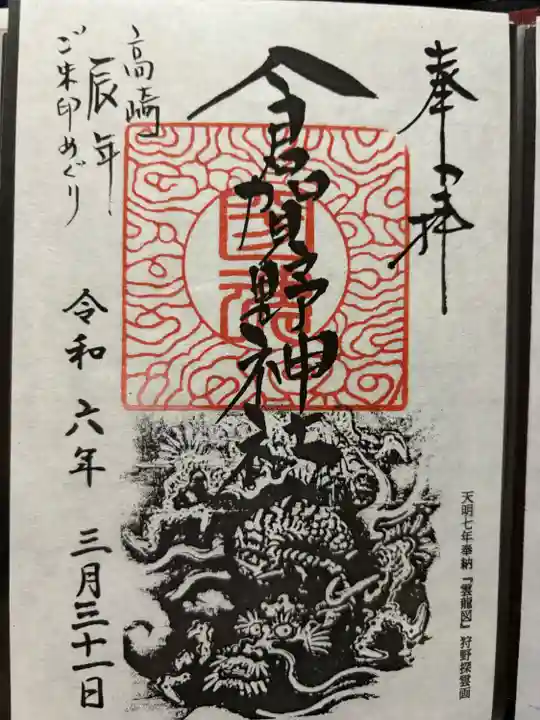 奉拝
倉賀野神社
高崎
辰年
ご朱印めぐり
令和六年 三月三十一日
天明七年奉納『雲龍図』狩野探雲画